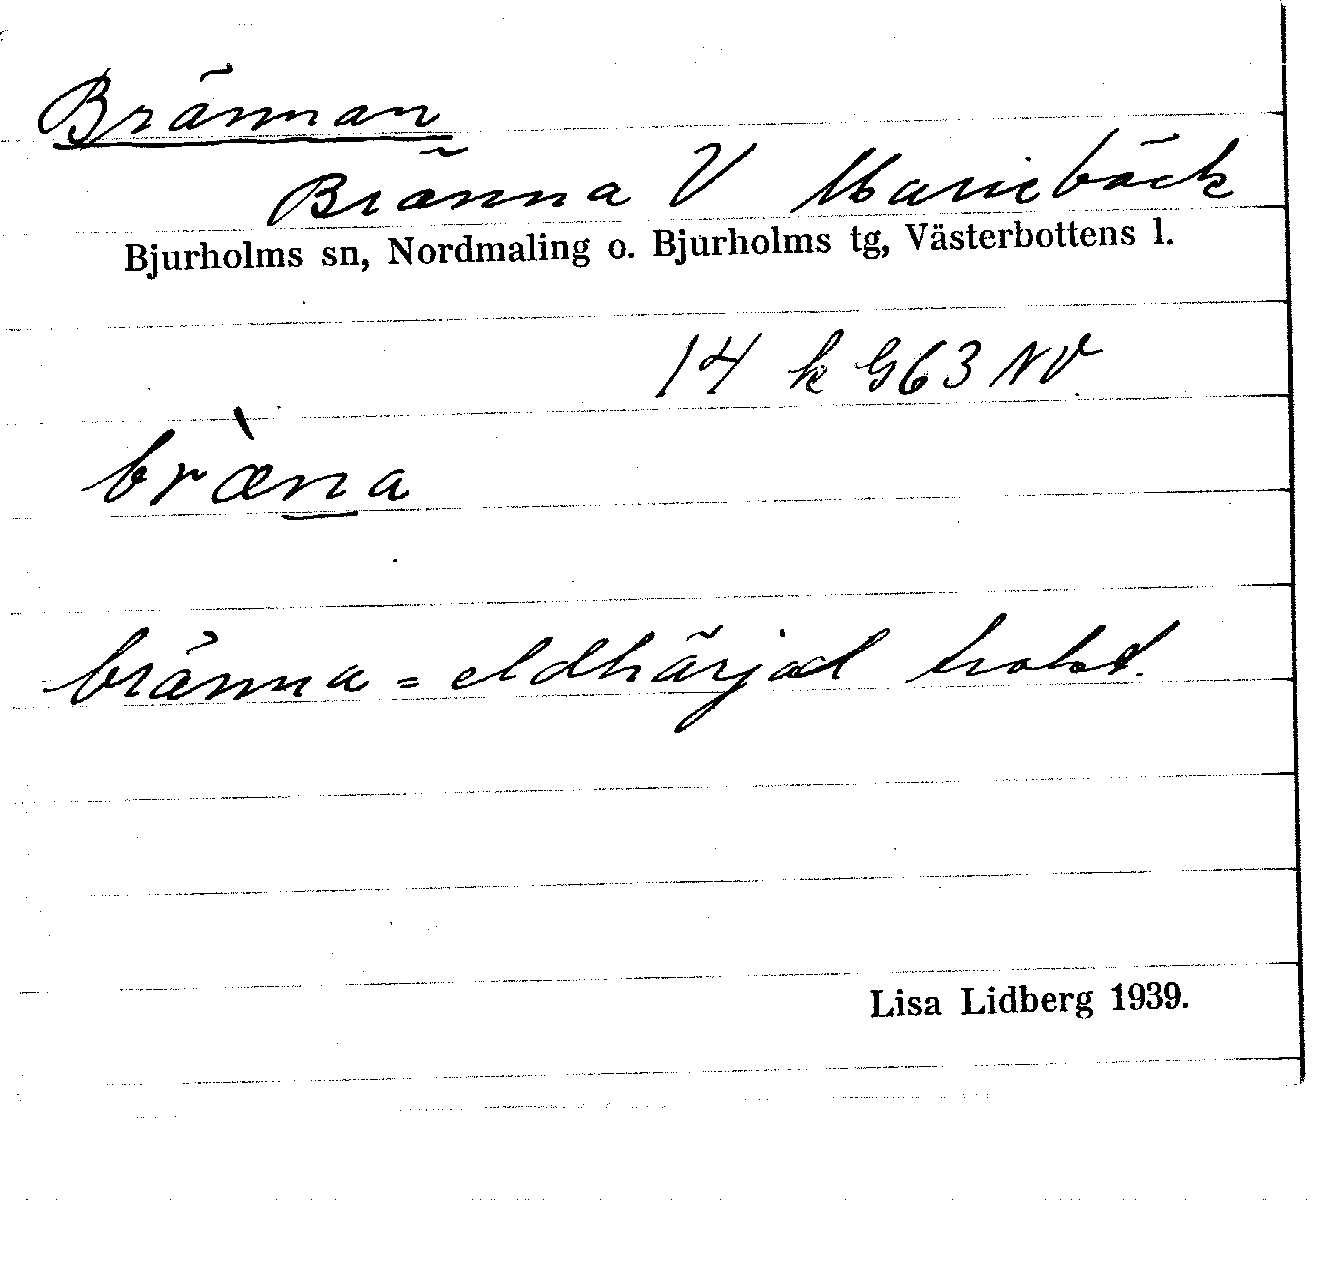 Brännan
Bränna V Mariebäck
Bjurholms sn, Nordmaling o. Bjurholms tg, Västerbottens l.
14 k G63 NV
bræ̀na
bränna = eldhärjad trakt.
Lisa Lidberg 1939.